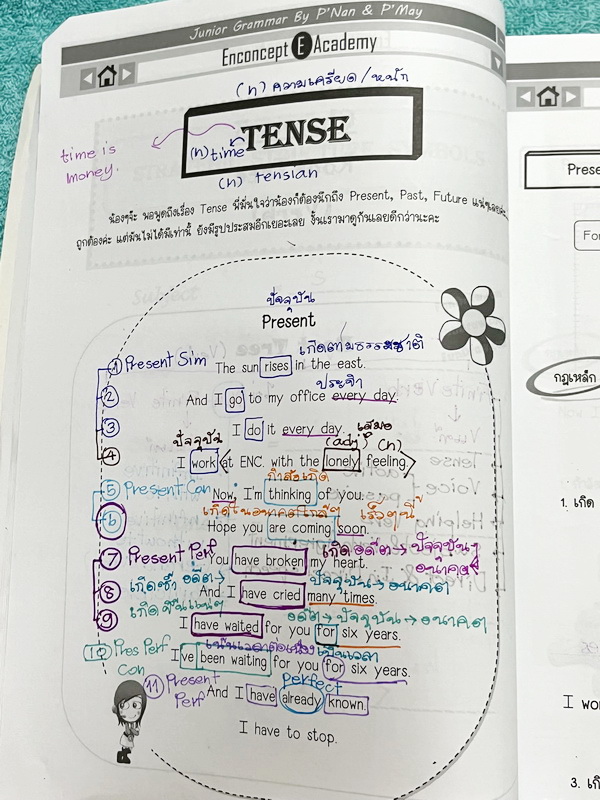 Junior Grammar By P'Nan & P'May
Enconcept E Academy
(n) ความเครียด / หนัก
TENSE
(n) time
time is
money.
(n) tension
น้องๆจ๊ะ พอพูดถึงเรื่อง Tense พี่มั่นใจว่าน้องก็ต้องนึกถึง Present, Past, Future แน่ๆเลยค่ะ
ถูกต้องค่ะ แต่มันไม่ได้มีเท่านี้ ยังมีรูปประสมอีกเยอะเลย งั้นเรามาดูกันเลยดีกว่านะคะ
ปัจจุบัน
Present
① Present Sim เกิดตามธรรมชาติ
The sun rises in the east.
② ประจำ
And I go to my office every day.
③ I do it every day. เสมอ
ปัจจุบัน (adj) (n)
④ I work at ENC. with the lonely feeling.
กำลังเกิด
⑤ Present Con Now, I'm thinking of you.
เกิดในอนาคตใกล้ๆ เร็วๆนี้
⑥ Hope you are coming soon.
⑦ Present Perf You have broken my heart. เกิด อดีต → ปัจจุบัน
อนาคต
⑧ เกิดซ้ำ อดีต → ปัจจุบัน → อนาคต
And I have cried many times.
⑨ อดีต → ปัจจุบัน → อนาคต
I have waited for you for six years.
⑩ Pres Perf เน้นเวลาต่อเนื่อง เป็นเวลา
Con I've been waiting for you for six years.
⑪ Present perfect
Perf And I have already known.
I have to stop.
Prese
For
กฎเหล็ก
1. เกิด
I wo
3. เกิ